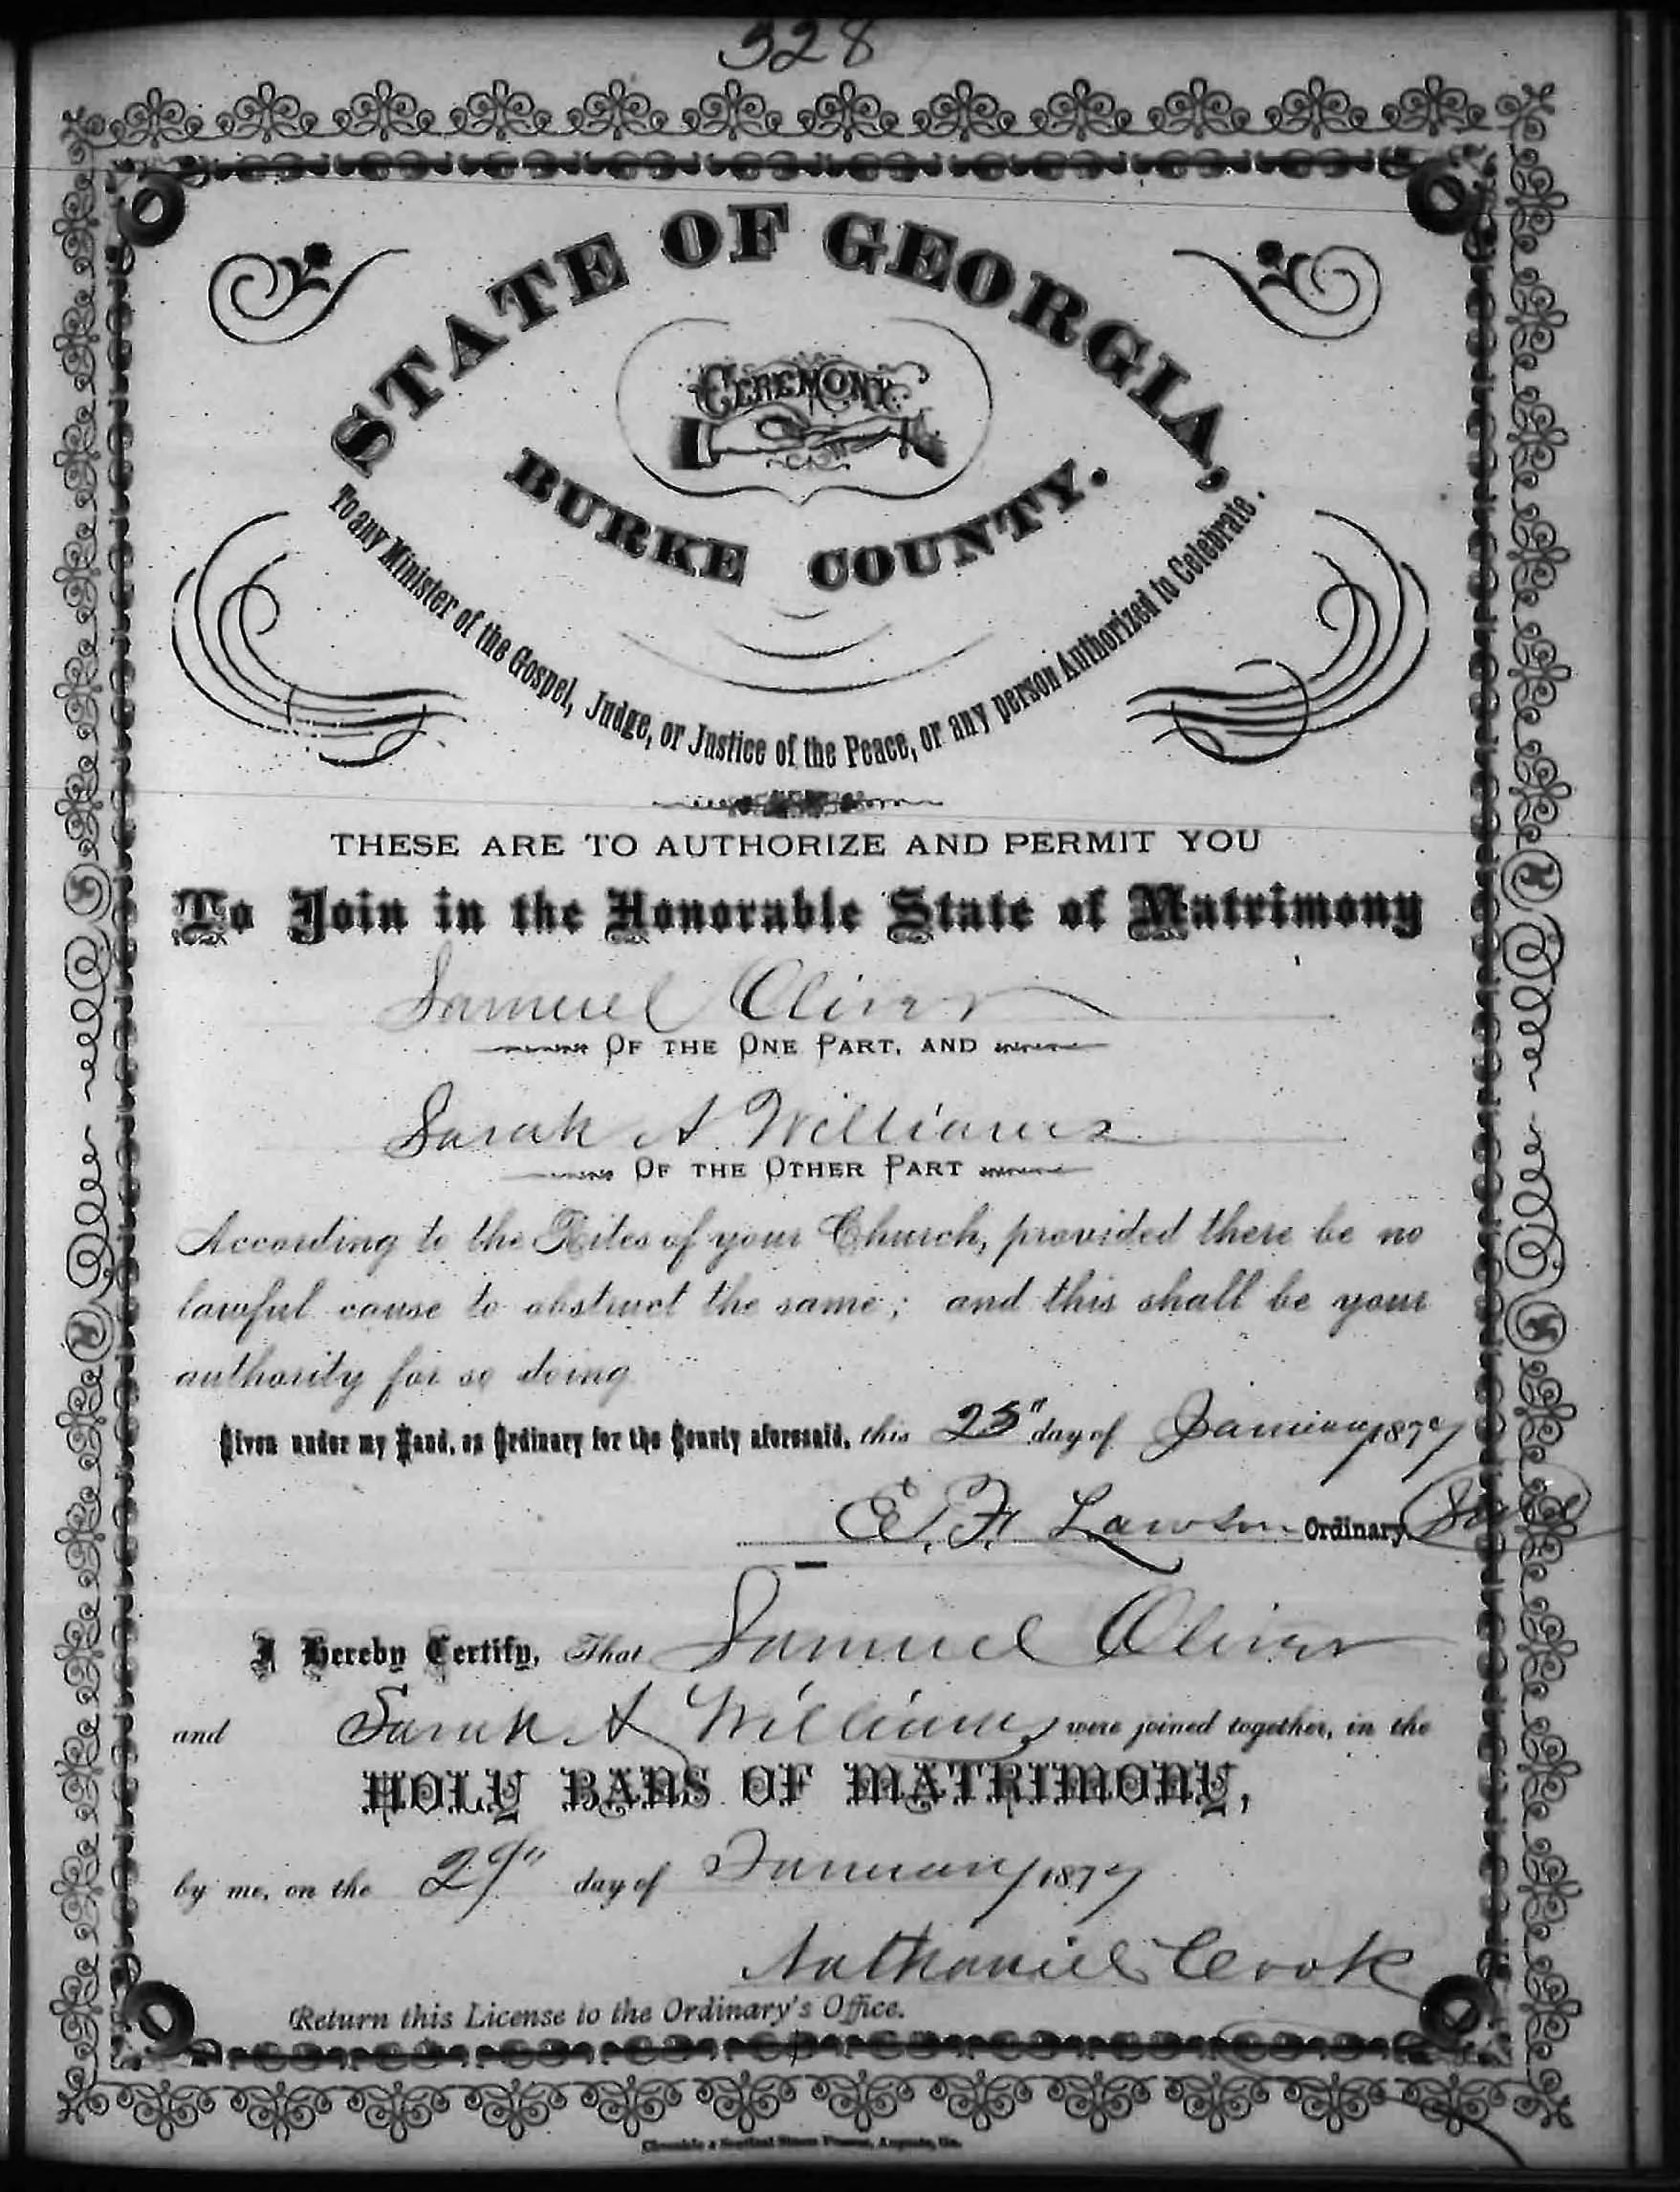 328
STATE OF GEORGIA,
CEREMONY
BURKE COUNTY.
To any Minister of the Gospel, Judge, or Justice of the Peace, or any person Authorized to Celebrate.
THESE ARE TO AUTHORIZE AND PERMIT YOU
To Join in the Honorable State of Matrimony
Samuel Oliver
OF THE ONE PART, AND
Sarah A Williams
OF THE OTHER PART
According to the Rites of your Church, provided there be no
lawful cause to obstruct the same; and this shall be your
authority for so doing
Given under my Hand, as Ordinary for the County aforesaid, this 25" day of January 1877
E. F. Lawson Ordinary. Seal
I Hereby Certify, That Samuel Oliver
and Sarah A Williams were joined together, in the
HOLY BANS OF MATRIMONY,
by me, on the 29" day of January 1877
Nathaniel Cook
Return this License to the Ordinary's Office.
Chronicle & Sentinel Steam Presses, Augusta, Ga.